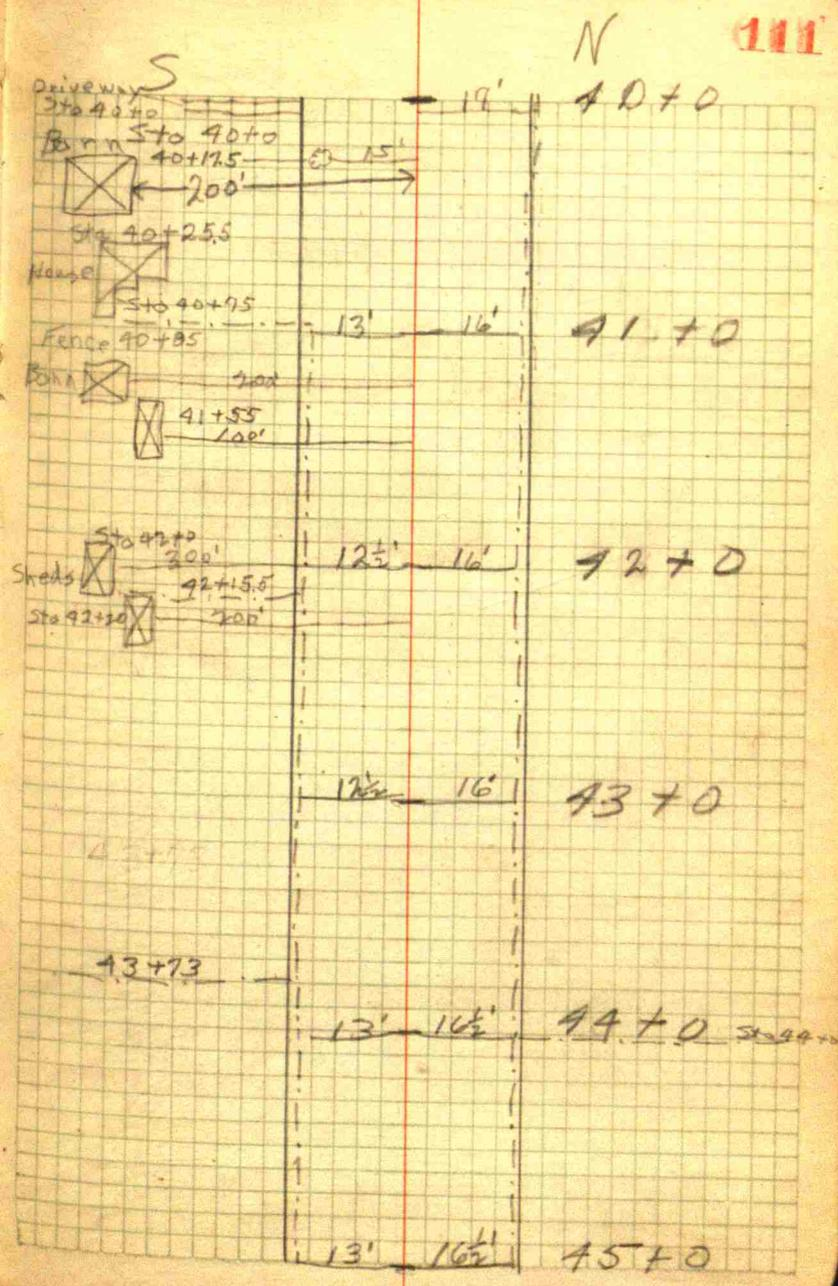 N
111
S
Driveway
Sta 40+0
18'
40+0
Barn
Sta 40+0
40+17.5
15'
200'
Sta 40+25.5
House
Sta 40+75
13'
16'
41+0
Fence 40+85
Barn
200'
41+55
100'
Sta 42+0
200'
12½'
16'
42+0
Sheds
42+15.5
Sta 42+20
200'
12½
16'
43+0
43+73
13'
16½'
44+0
Sta 44+0
13'
16½'
45+0